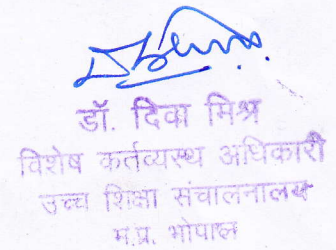 डॉ. दिवा मिश्र
विशेष कर्तव्यस्थ अधिकारी
उच्च शिक्षा संचालनालय
म.प्र. भोपाल